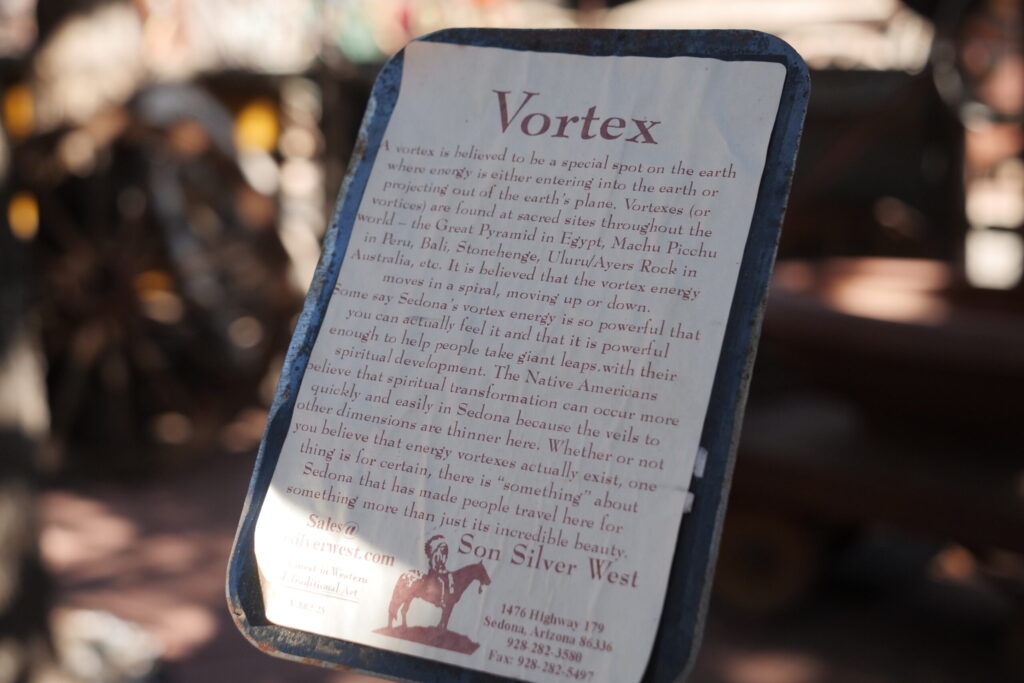 Vortex
A vortex is believed to be a special spot on the earth
where energy is either entering into the earth or
projecting out of the earth's plane. Vortexes (or
vortices) are found at sacred sites throughout the
world – the Great Pyramid in Egypt, Machu Picchu
in Peru, Bali, Stonehenge, Uluru/Ayers Rock in
Australia, etc. It is believed that the vortex energy
moves in a spiral, moving up or down.
Some say Sedona's vortex energy is so powerful that
you can actually feel it and that it is powerful
enough to help people take giant leaps with their
spiritual development. The Native Americans
believe that spiritual transformation can occur more
quickly and easily in Sedona because the veils to
other dimensions are thinner here. Whether or not
you believe that energy vortexes actually exist, one
thing is for certain, there is "something" about
Sedona that has made people travel here for
something more than just its incredible beauty.
Sales@
silverwest.com
in Western
Traditional Art
Son Silver West
1476 Highway 179
Sedona, Arizona 86336
928-282-3580
Fax: 928-282-5497